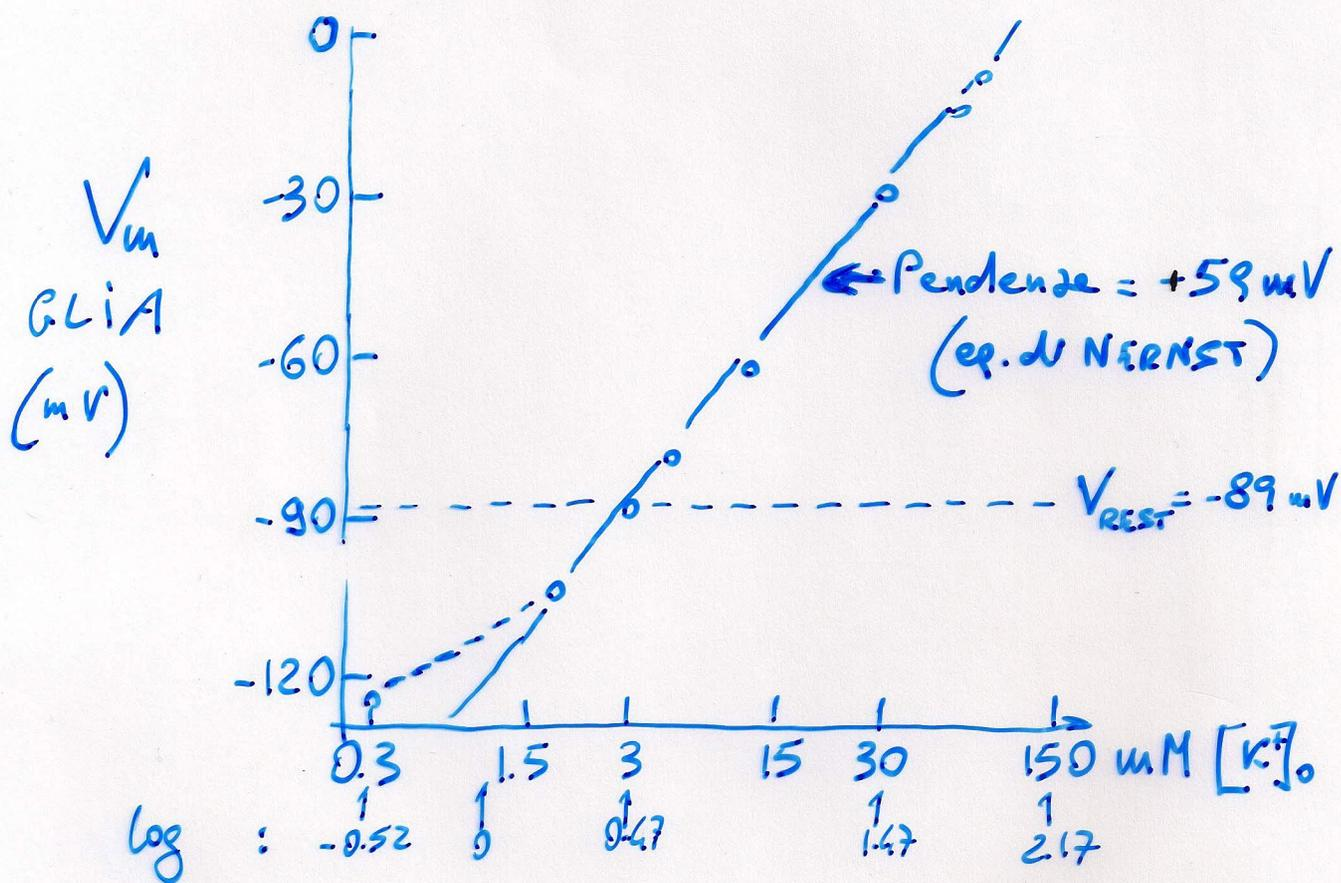 0
-30
-60
-90
-120
Vm
GLIA
(mV)
Pendenza = +59 mV
(eq. di NERNST)
VREST = -89 mV
0.3 1.5 3 15 30 150 mM [K+]o
log : -0.52 0 0.47 1.47 2.17